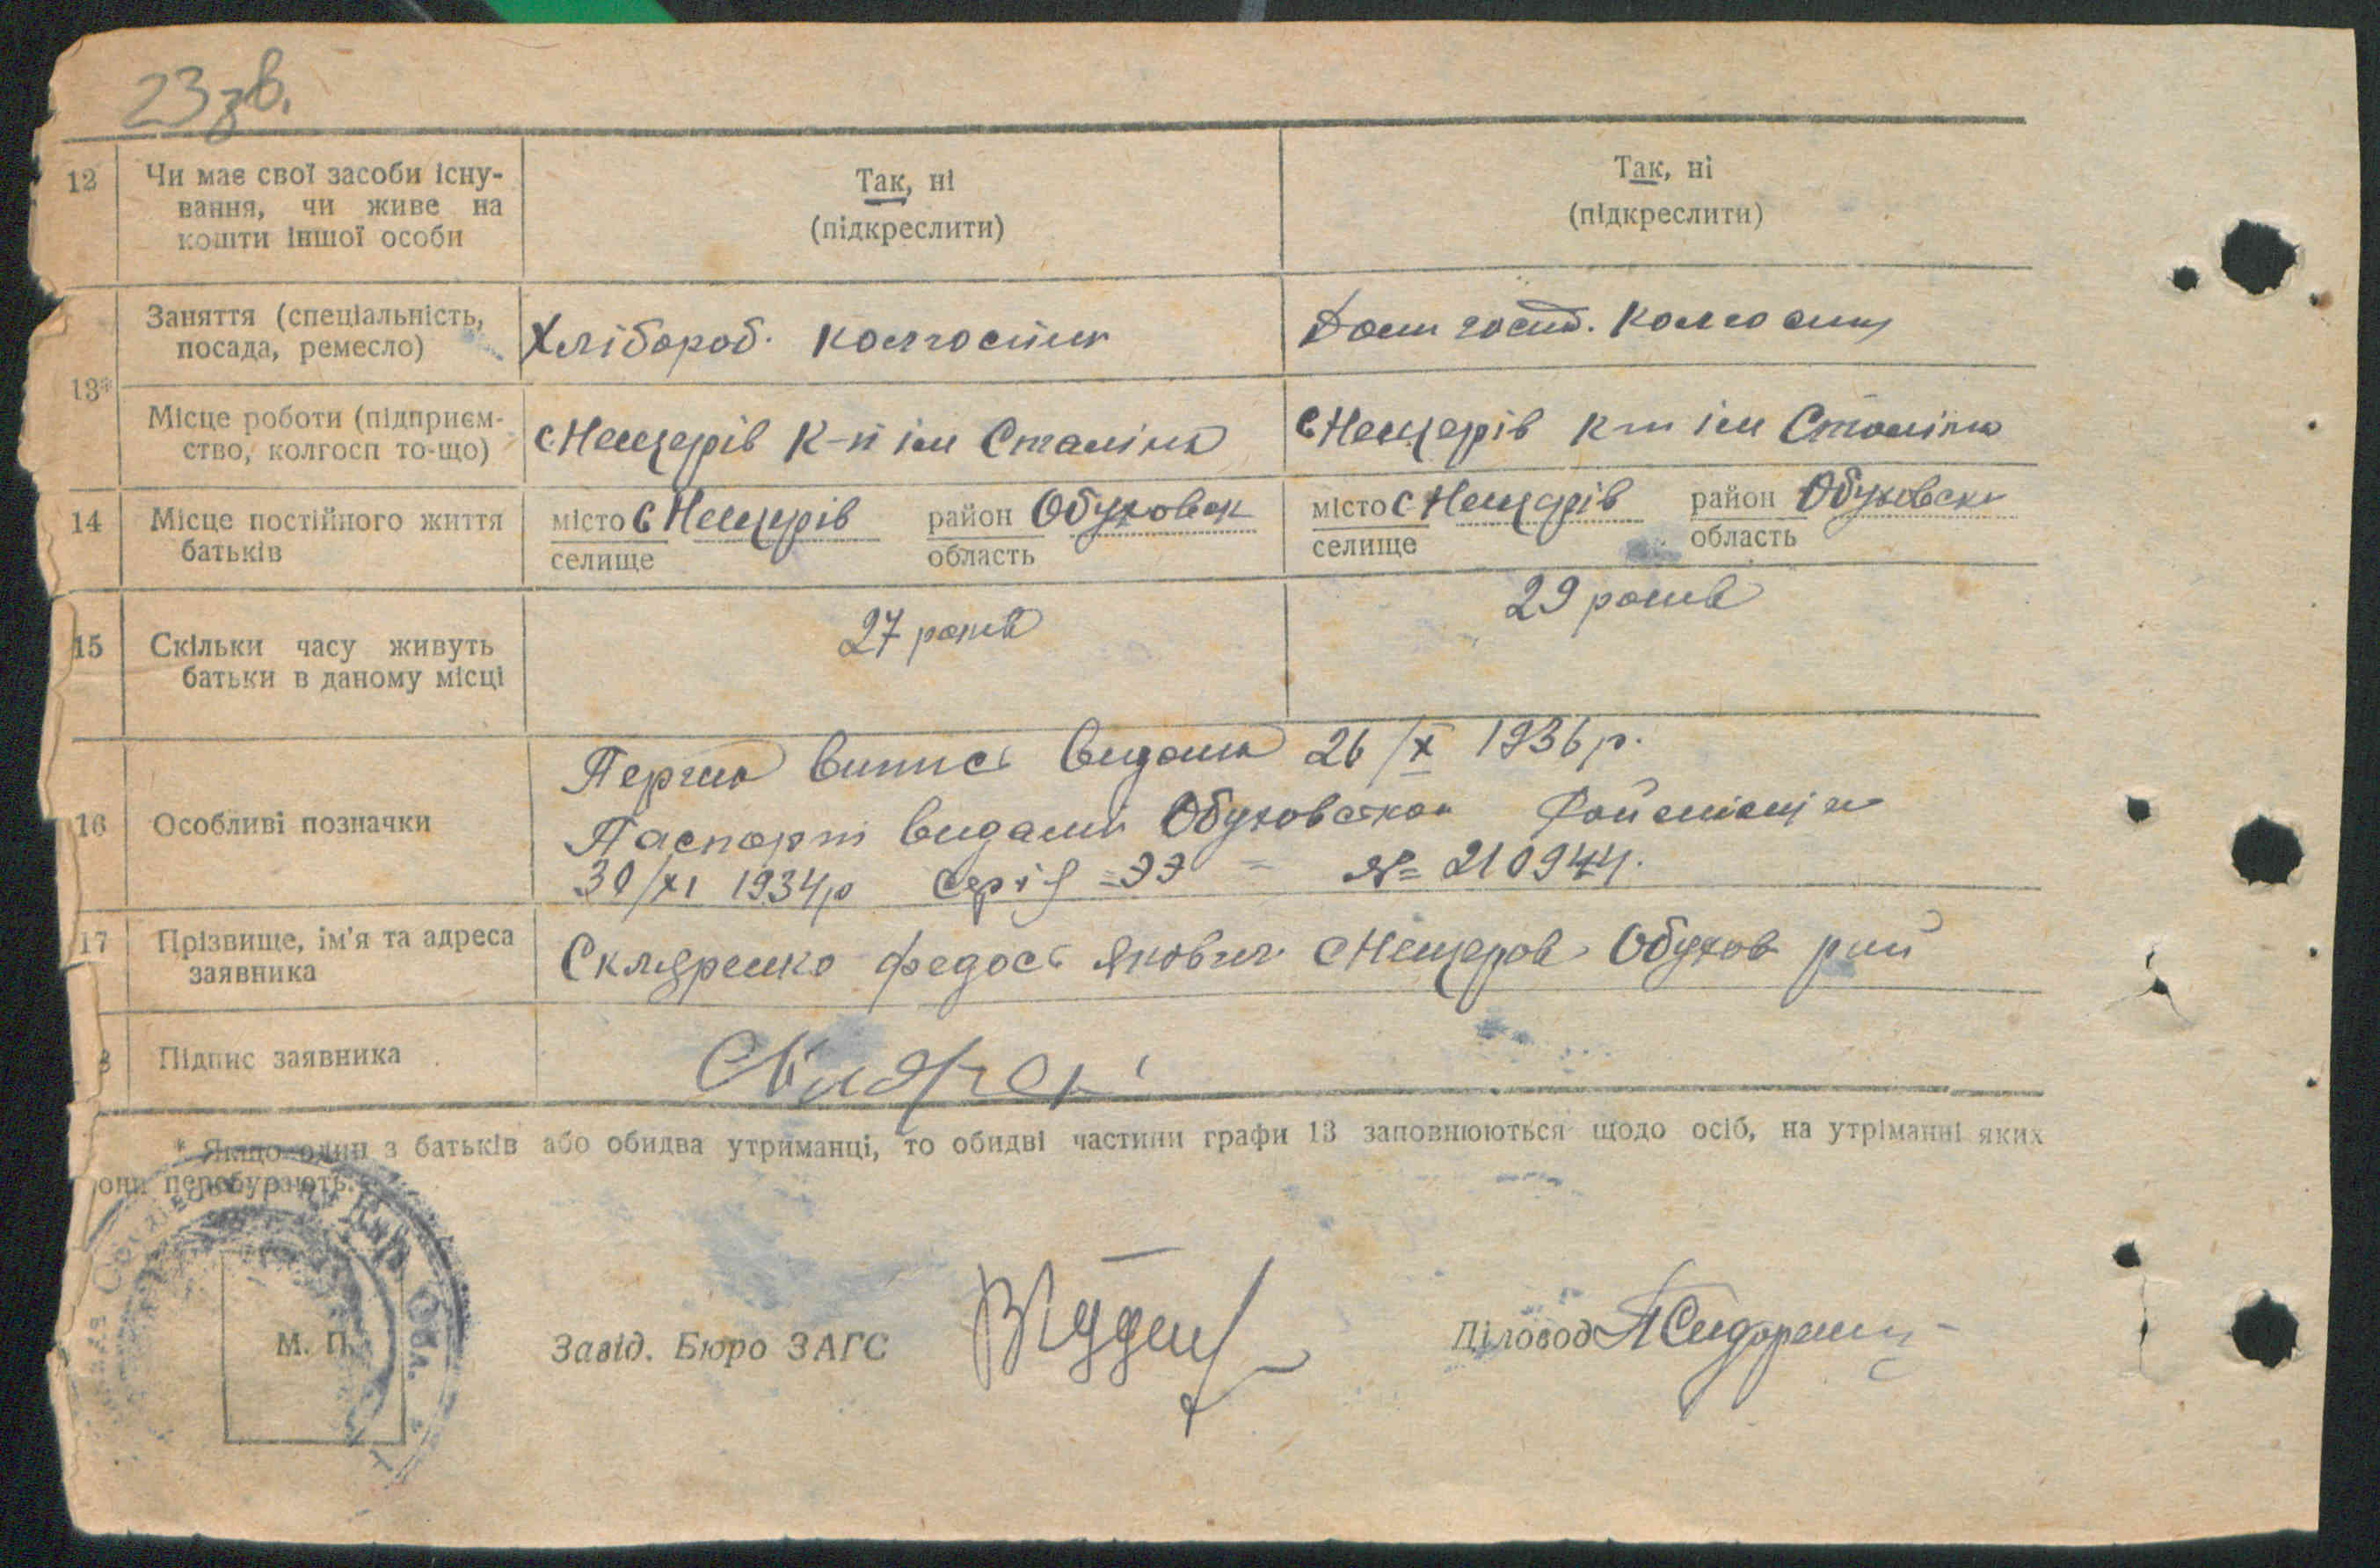 23 зв.
12 Чи має свої засоби існу-
вання, чи живе на
кошти іншої особи
Так, ні
(підкреслити)
Так, ні
(підкреслити)
13*
Заняття (спеціальність,
посада, ремесло)
Хлібороб. колгоспник
Дом госпд. колгоспниц
Місце роботи (підприєм-
ство, колгосп то-що)
с Нещерів к-п ім Сталіна
с Нещерів к-п ім Сталіна
14 Місце постійного життя
батьків
місто с Нещерів район Обуховск
селище область
місто с Нещерів район Обуховськ
селище область
15 Скільки часу живуть
батьки в даному місці
27 років
29 років
16 Особливі позначки
Перша випись видана 26/X 1936 р.
Паспорт видани Обуховською Райміліція
30/XI 1934р серія =ЭЭ= № 210944.
17 Прізвище, ім'я та адреса
заявника
Скляренко Федось Якович с Нещеров Обухов рай
Підпис заявника
* Якщо один з батьків або обидва утриманці, то обидві частини графи 13 заповнюються щодо осіб, на утріманні яких
вони перебувають.
М. П.
Завід. Бюро ЗАГС
Діловод